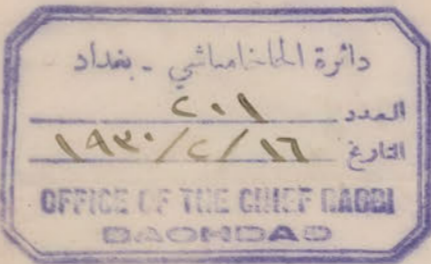 دائرة الحاخامباشي - بغداد
العدد ٢٠١
التاريخ ١٦/٢/١٩٣٠
OFFICE OF THE CHIEF RABBI
BAGHDAD